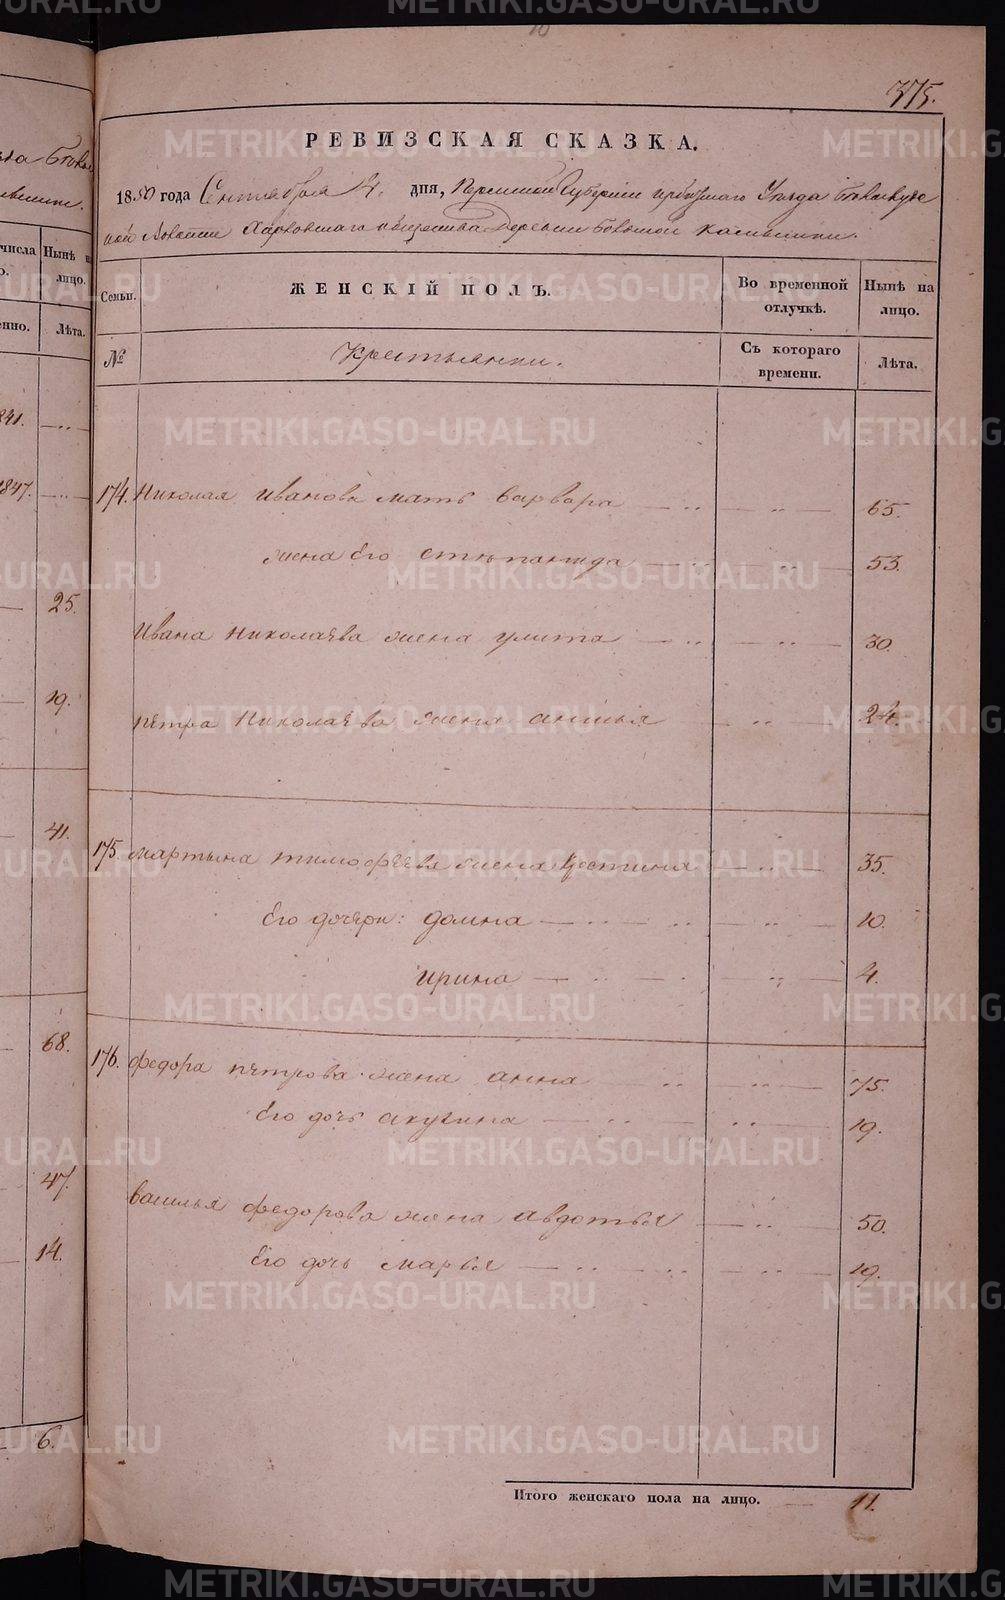 375.
РЕВИЗСКАЯ СКАЗКА.
1850 года Сентября дня, Пермской Губернии Ирбитского Уезда
Харловского общества Деревни Большой
Семьи.
ЖЕНСКІЙ ПОЛЪ.
Во временной отлучкѣ.
Нынѣ на лицо.
№
Крестьянки.
Съ котораго времени.
Лѣта.
174. Николая Иванова мать Варвара 65.
жена Его Степанида 53.
Ивана Николаева жена Улита 30.
Петра Николаева жена Анисья 24.
175. Мартына Тимофеева жена Устина 35.
Его дочери: Домна 10.
Ирина 4.
176. Федора Петрова жена Анна 75.
Его дочь Акулина 19.
Василья Федорова жена Авдотья 50.
Его дочь Марья 19.
Итого женскаго пола на лицо. 11.
числа
Нынѣ
лицо.
Лѣта.
1847.
25.
19.
41.
68.
47.
14.
6.
METRIKI.GASO-URAL.RU